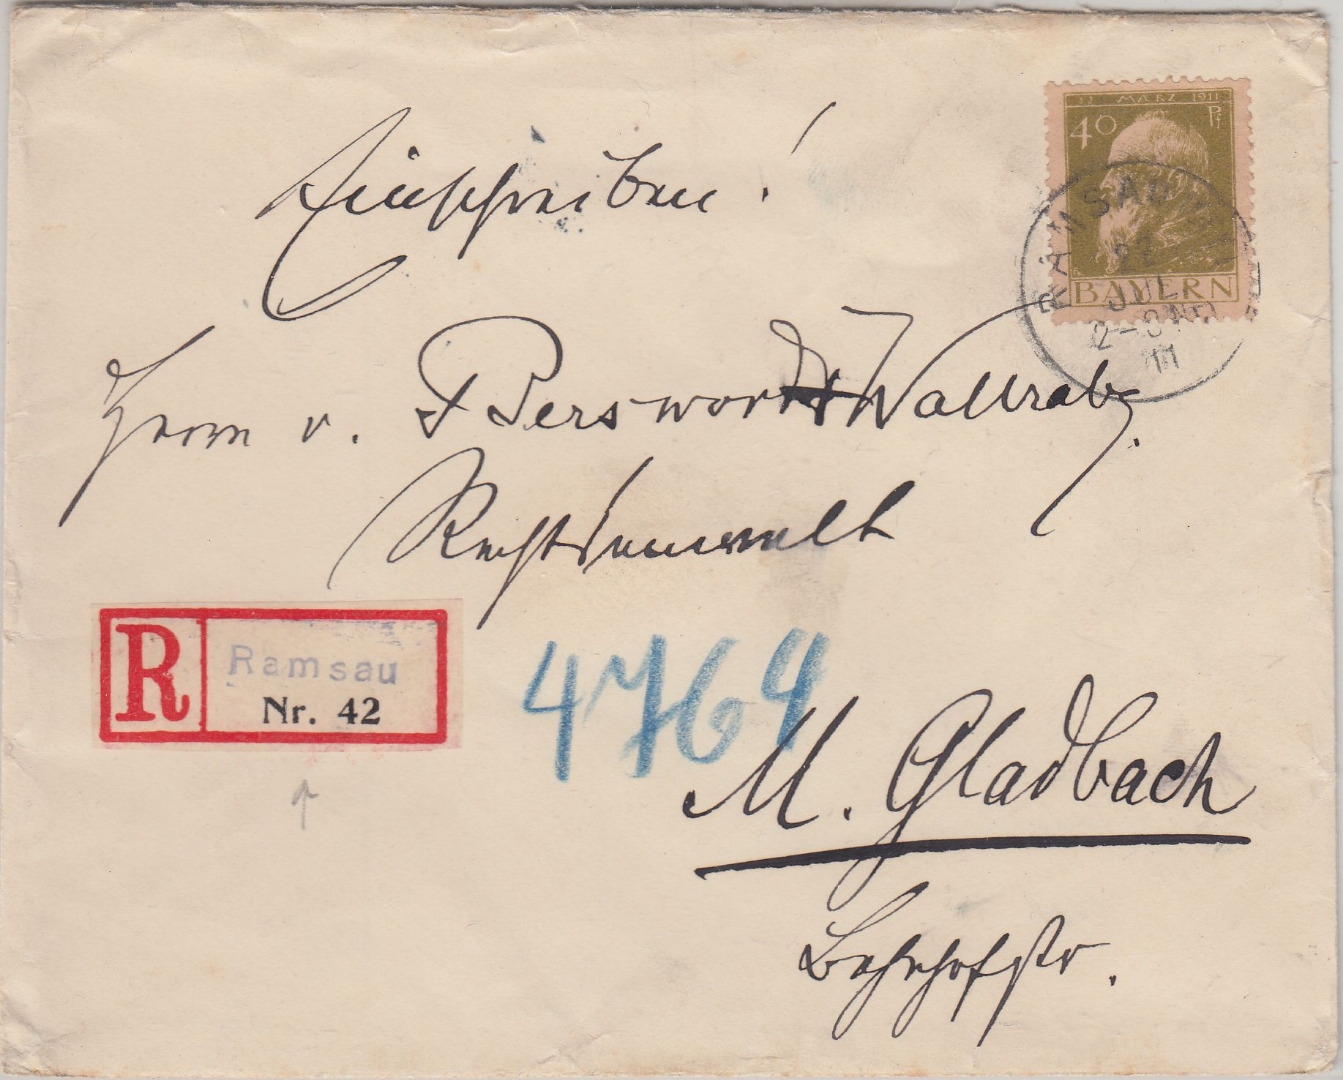 12 MÄRZ 1911
40 Pf
BAYERN
RAMSAU
22
JUL
2-3 N
11
Einschreiben!
Herrn v. Perswordt Wallrabe
Rechtsanwalt
R Ramsau
Nr. 42
4764
M. Gladbach
Bahnhofstr.